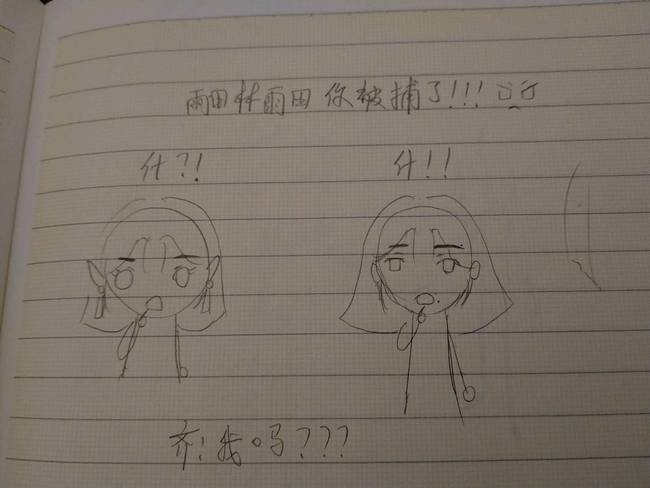 雨田林雨田 你被捕了!!!
什?! 什!!
齐!我吗???